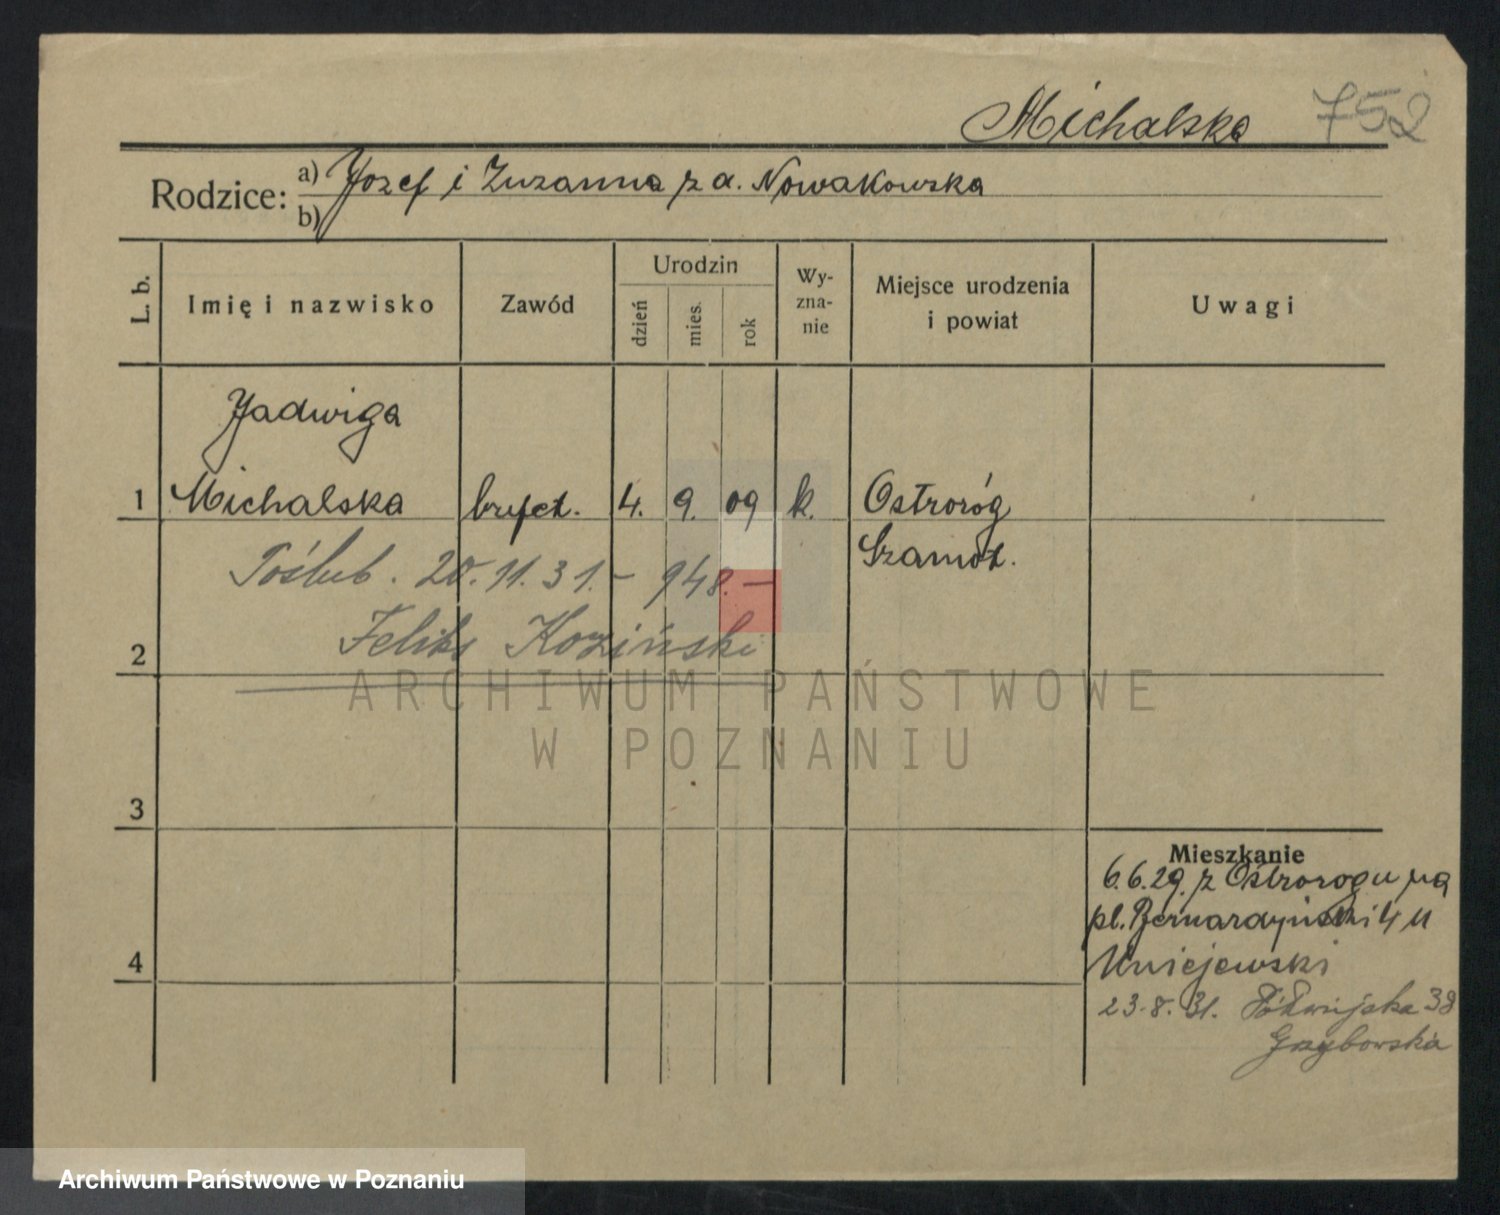 Michalska 752
Rodzice: a) Józef i Zuzanna z d. Nowakowska
b)
L. b. Imię i nazwisko Zawód Urodzin dzień mies. rok Wy-zna-nie Miejsce urodzenia i powiat Uwagi
Jadwiga
1 Michalska 4. 9. 09 k. Ostroróg
Szamot.
Poślub. 20.11.31.- 948.-
2 Feliks Koziński
ARCHIWUM PAŃSTWOWE
W POZNANIU
3
Mieszkanie
6.6.29. z Ostrorogu na
pl. Bernardyński 4 u
4 Uniejewski
23.8.31. Półwiejska 38
Grzybowska
Archiwum Państwowe w Poznaniu